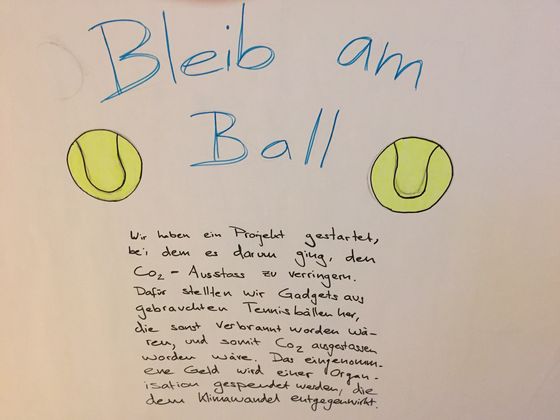 Bleib am
Ball
Wir haben ein Projekt gestartet,
bei dem es darum ging, den
Co2 - Ausstoss zu verringern.
Dafür stellten wir Gadgets aus
gebrauchten Tennisbällen her,
die sonst verbrannt worden wä-
ren, und somit Co2 ausgestossen
worden wäre. Das eingenomm-
ene Geld wird einer Organ-
isation gespendet werden, die
dem Klimawandel entgegenwirkt.